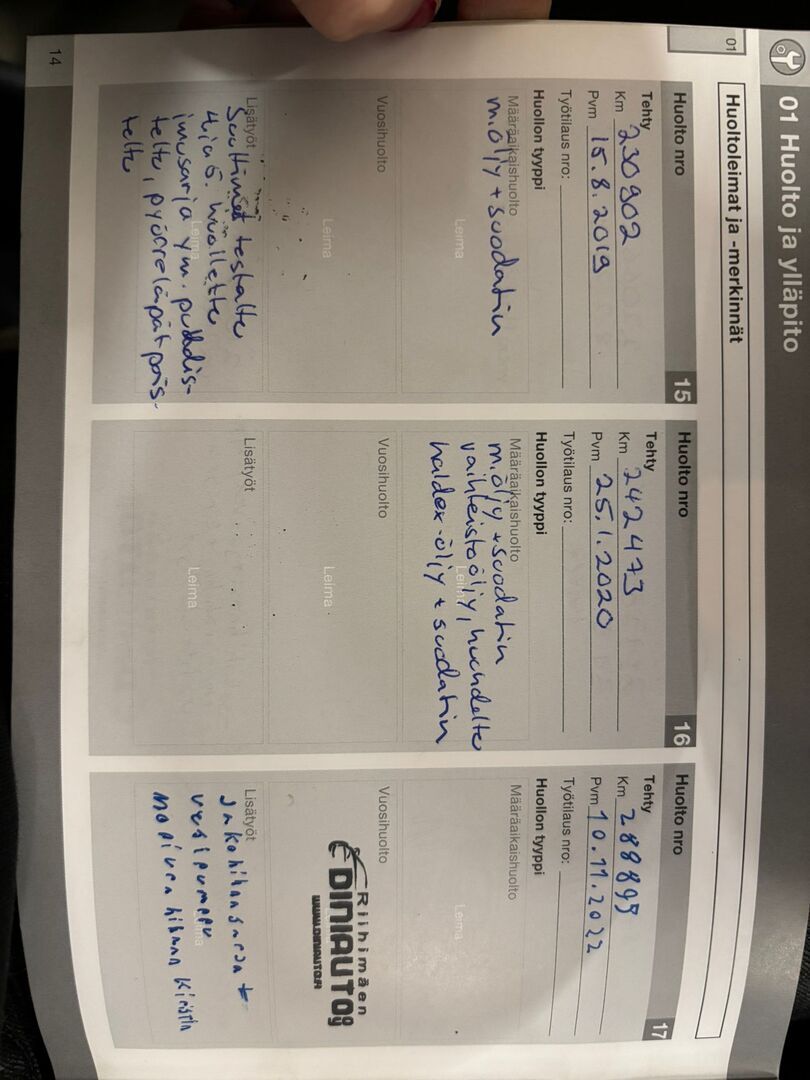 01 Huolto ja ylläpito
01
Huoltoleimat ja -merkinnät
Huolto nro 15
Tehty
Km 230902
Pvm 15.8.2019
Työtilaus nro:
Huollon tyyppi
Määräaikaishuolto
Leima
m.öljy + suodatin
Vuosihuolto
Leima
Lisätyöt
Leima
Suuttimet testattu
4 ja 5. huollettu
imusarja ym. puhdis-
tettu, pyörreläpät pois-
tettu
Huolto nro 16
Tehty
Km 242473
Pvm 25.1.2020
Työtilaus nro:
Huollon tyyppi
Määräaikaishuolto
Leima
m.öljy + suodatin
vaihteistoöljy, huuhdeltu
haldex-öljy + suodatin
Vuosihuolto
Leima
Lisätyöt
Leima
Huolto nro 17
Tehty
Km 288895
Pvm 10.11.2022
Työtilaus nro:
Huollon tyyppi
Määräaikaishuolto
Leima
Vuosihuolto
Riihimäen
DINIAUTO oy
WWW.DINIAUTO.FI
Lisätyöt
Leima
Jakohihnasarja +
vesipumppu
hihnan kiristin
14